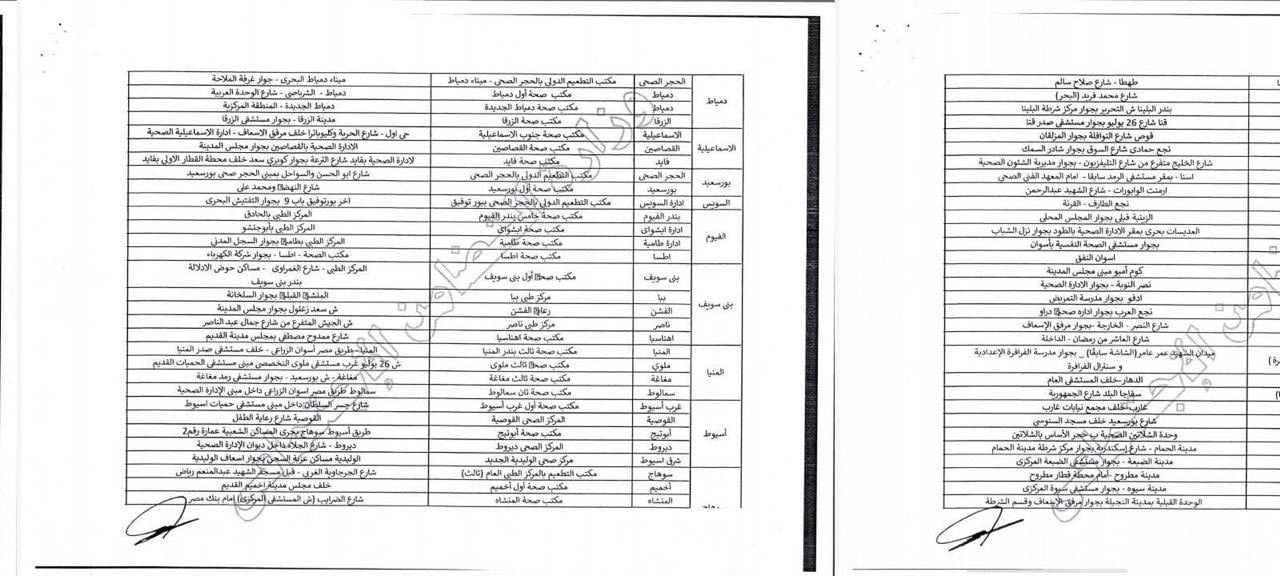 دمياط
الحجر الصحى مكتب التطعيم الدولى بالحجر الصحى - ميناء دمياط ميناء دمياط البحرى - جوار غرفة الملاحة
دمياط مكتب صحة أول دمياط دمياط - الشرباصى - شارع الوحدة العربية
دمياط مكتب صحة دمياط الجديدة دمياط الجديدة - المنطقة المركزية
الزرقا مكتب صحة الزرقا مدينة الزرقا - بجوار مستشفى الزرقا
الاسماعيلية
الاسماعيلية مكتب صحة جنوب الاسماعيلية حى اول - شارع الحرية وكليوباترا خلف مرفق الاسعاف - ادارة الاسماعيلية الصحية
القصاصين مكتب صحة القصاصين الادارة الصحية بالقصاصين بجوار مجلس المدينة
فايد مكتب صحة فايد لادارة الصحية بفايد شارع الترعة بجوار كوبري سعد خلف محطة القطار الاولى بفايد
بورسعيد
الحجر الصحى مكتب التطعيم الدولى بالحجر الصحى شارع ابو الحسن والسواحل بمبنى الحجر صحى بورسعيد
بورسعيد مكتب صحة أول بورسعيد شارع النهض ومحمد على
السويس ادارة السويس مكتب التطعيم الدولى بالحجر الصحى ببور توفيق اخر بورتوفيق باب 9 بجوار التفتيش البحرى
الفيوم
بندر الفيوم مكتب صحة خامس بندر الفيوم المركز الطبى بالحادق
ادارة ابشواى مكتب صحة ابشواى المركز الطبى بأبوجنشو
ادارة طامية مكتب صحة طامية المركز الطبى بطام بجوار السجل المدنى
اطسا مكتب صحة اطسا مكتب الصحة - اطسا - بجوار شركة الكهرباء
بنى سويف
بنى سويف مكتب صح أول بنى سويف المركز الطبى - شارع الغمراوى - مساكن حوض الادلالة
بندر بنى سويف
ببا مركز طبى ببا بجوار السلخانة
الفشن الفشن ش سعد زغلول بجوار مجلس المدينة
ناصر مركز طبى ناصر ش الجيش المتفرع من شارع جمال عبد الناصر
اهناسيا مكتب صحة اهناسيا شارع ممدوح مصطفى بمجلس مدينة القديم
المنيا
المنيا مكتب صحة ثالث بندر المنيا المنيا-طريق مصر أسوان الزراعى - خلف مستشفى صدر المنيا
ملوي مكتب صح ثالث ملوى ش 26 يوليو غرب مستشفى ملوى التخصصى مبنى مستشفى الحميات القديم
مغاغة مكتب صحة ثالث مغاغة مغاغة - ش بورسعيد - بجوار مستشفى رمد مغاغة
سمالوط مكتب صحة ثان سمالوط سمالوط طريق مصر اسوان الزراعى داخل مبنى الإدارة الصحية
أسيوط
غرب أسيوط مكتب صحة أول غرب أسيوط شارع جسر السلطان داخل مبنى مستشفى حميات اسيوط
القوصية المركز الصحى القوصية القوصية شارع رعاية الطفل
أبوتيج مكتب صحة أبوتيج طريق أسيوط سوهاج بحرى المساكن الشعبية عمارة رقم2
ديروط المركز الصحى ديروط ديروط - شارع الجلاء داخل ديوان الإدارة الصحية
شرق اسيوط مركز صحى الوليدية الجديد الوليدية مساكن عزبة السجن بجوار اسعاف الوليدية
سوهاج مكتب التطعيم بالمركز الطبى العام (ثالث) شارع الجرجاوية الغربى - قبل مسجد الشهيد عبدالمنعم رياض
أخميم مكتب صحة أول أخميم خلف مجلس مدينة إخميم القديم
المنشاه مكتب صحة المنشاه شارع الضرايب (ش المستشفى المركزى) امام بنك مصر
طهطا - شارع صلاح سالم
شارع محمد فريد (البحر)
بندر البلينا ش التحرير بجوار مركز شرطة البلينا
قنا شارع 26 يوليو بجوار مستشفى صدر قنا
قوص شارع النوافلة بجوار المزلقان
نجع حمادى شارع السوق بجوار شادر السمك
شارع الخليج متفرع من شارع التليفزيون - بجوار مديرية الشئون الصحية
اسنا - بمقر مستشفى الرمد سابقا - امام المعهد الفنى الصحى
ارمنت الوابورات - شارع الشهيد عبدالرحمن
نجع الطارف - القرنة
الزينية قبلى بجوار المجلس المحلى
العديسات بحرى بمقر الادارة الصحية بالطود بجوار نزل الشباب
بجوار مستشفى الصحة النفسية بأسوان
اسوان النفق
كوم أمبو مبنى مجلس المدينة
نصر النوبة - بجوار الادارة الصحية
ادفو بجوار مدرسة التمريض
نجع العرب بجوار اداره صح دراو
شارع النصر - الخارجة -بجوار مرفق الإسعاف
شارع العاشر من رمضان - الداخلة
ميدان الشهيد عمر عامر(الشاشة سابقًا) _ بجوار مدرسة الفرافرة الإعدادية
و سنترال الفرافرة
الدهار-خلف المستشفى العام
سفاجا البلد شارع الجمهورية
غارب خلف مجمع نيابات غارب
شارع بورسعيد خلف مسجد السنوسي
وحدة الشلاتين الصحية ب حجر الأساس بالشلاتين
مدينة الحمام - شارع إسكندرية بجوار مركز شرطة مدينة الحمام
مدينة الضبعة - بجوار مستشفى الضبعة المركزى
مدينة مطروح -أمام محطة قطار مطروح
مدينة سيوه - بجوار مستشفى سيوة المركزى
الوحدة القبلية بمدينة النجيلة بجوار مرفق الإسعاف وقسم الشرطة